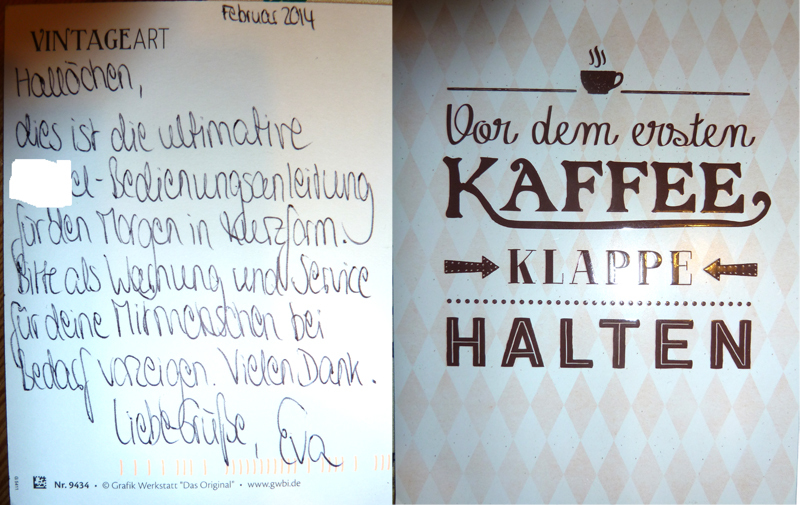 Februar 2014
VINTAGEART
Hallöchen,
dies ist die ultimative
el-Bedienungsanleitung
für den Morgen in Kurzform.
Bitte als Warnung und Service
für deine Mitmenschen bei
Bedarf vorzeigen. Vielen Dank.
Liebe Grüße, Eva
Nr. 9434 • © Grafik Werkstatt "Das Original" • www.gwbi.de
Vor dem ersten
KAFFEE,
KLAPPE
HALTEN